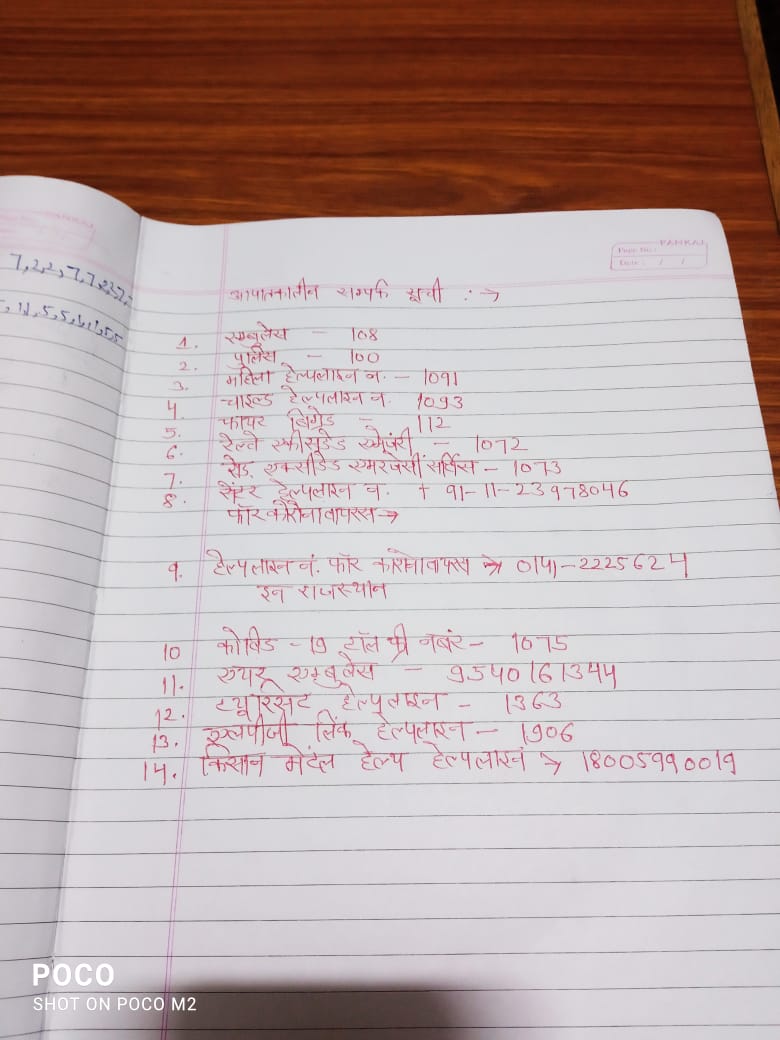 PANKAJ
Page No.:
Date: / /
7,2,2,7,7,
5,5,
आपातकालीन सम्पर्क सूची :->
1. एम्बुलेंस - 108
2. पुलिस - 100
3. महिला हेल्पलाइन न. - 1091
4. चाइल्ड हेल्पलाइन न. 1093
5. फायर ब्रिगेड - 112
6. रेल्वे - 1072
7. रोड एक्सीडेंड एमरजेंसी सर्विस - 1073
8. सेंटर हेल्पलाइन न. + 91-11-23978046
फॉर कोरोनावायरस->
9. हेल्पलाइन नं. फॉर कोरोनोवायरस -> 0141-2225624
इन राजस्थान
10 कोविड -19 टॉल फ्री नबंर - 1075
11. एयर एम्बुलेंस - 9540161344
12. ट्यूरिसट हेल्पलाइन - 1363
13. एलपीजी लिंक हेल्पलाइन - 1906
14. किसान मेंटल हेल्प हेल्पलाइन -> 18005990019
POCO
SHOT ON POCO M2